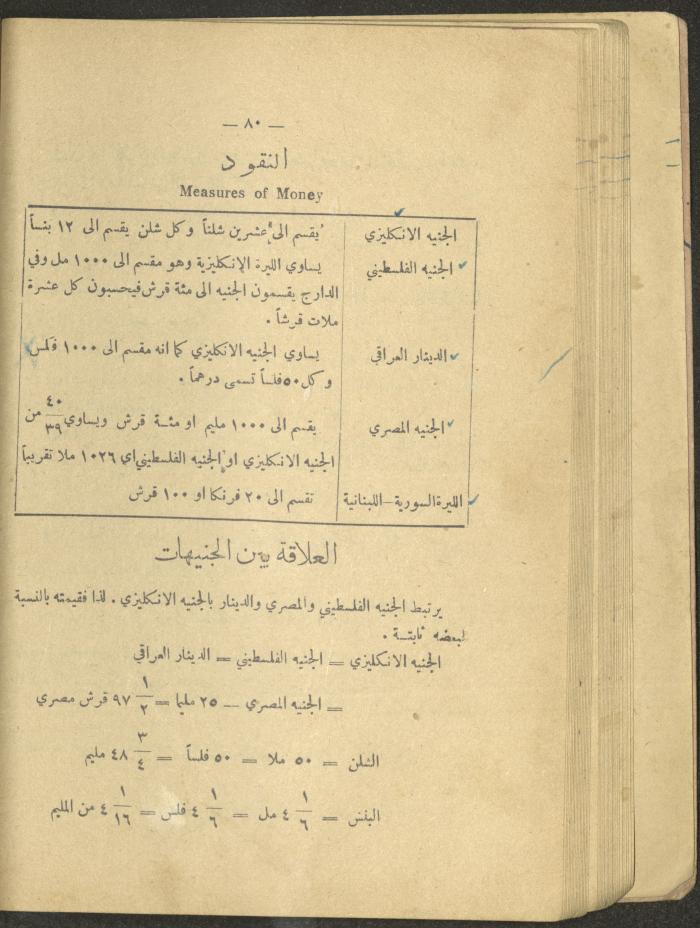 — ٨٠ —
النقود
Measures of Money
الجنيه الانكليزي يقسم الى عشرين شلناً وكل شلن يقسم الى ١٢ بنساً
الجنيه الفلسطيني يساوي الليرة الانكليزية وهو مقسم الى ١٠٠٠ مل وفي
الدارج يقسمون الجنيه الى مئة قرش فيحسبون كل عشرة
ملات قرشاً .
الدينار العراقي يساوي الجنيه الانكليزي كما انه مقسم الى ١٠٠٠ فلس
وكل ٥٠ فلساً تسمى درهماً .
الجنيه المصري يقسم الى ١٠٠٠ مليم او مئة قرش ويساوي ٤٠/٣٩ من
الجنيه الانكليزي او الجنيه الفلسطيني اي ١٠٢٦ ملا تقريباً
الليرة السورية – اللبنانية تقسم الى ٢٠ فرنكا او ١٠٠ قرش
العلاقة بين الجنيهات
يرتبط الجنيه الفلسطيني والمصري والدينار بالجنيه الانكليزي . لذا فقيمته بالنسبة
لبعضه ثابتة .
الجنيه الانكليزي = الجنيه الفلسطيني = الدينار العراقي
= الجنيه المصري — ٢٥ مليما = ٩٧ ١/٢ قرش مصري
الشلن = ٥٠ ملا = ٥٠ فلساً = ٤٨ ٣/٤ مليم
البنس = ٤ ١/٦ مل = ٤ ١/٦ فلس = ٤ ١/١٦ من المليم